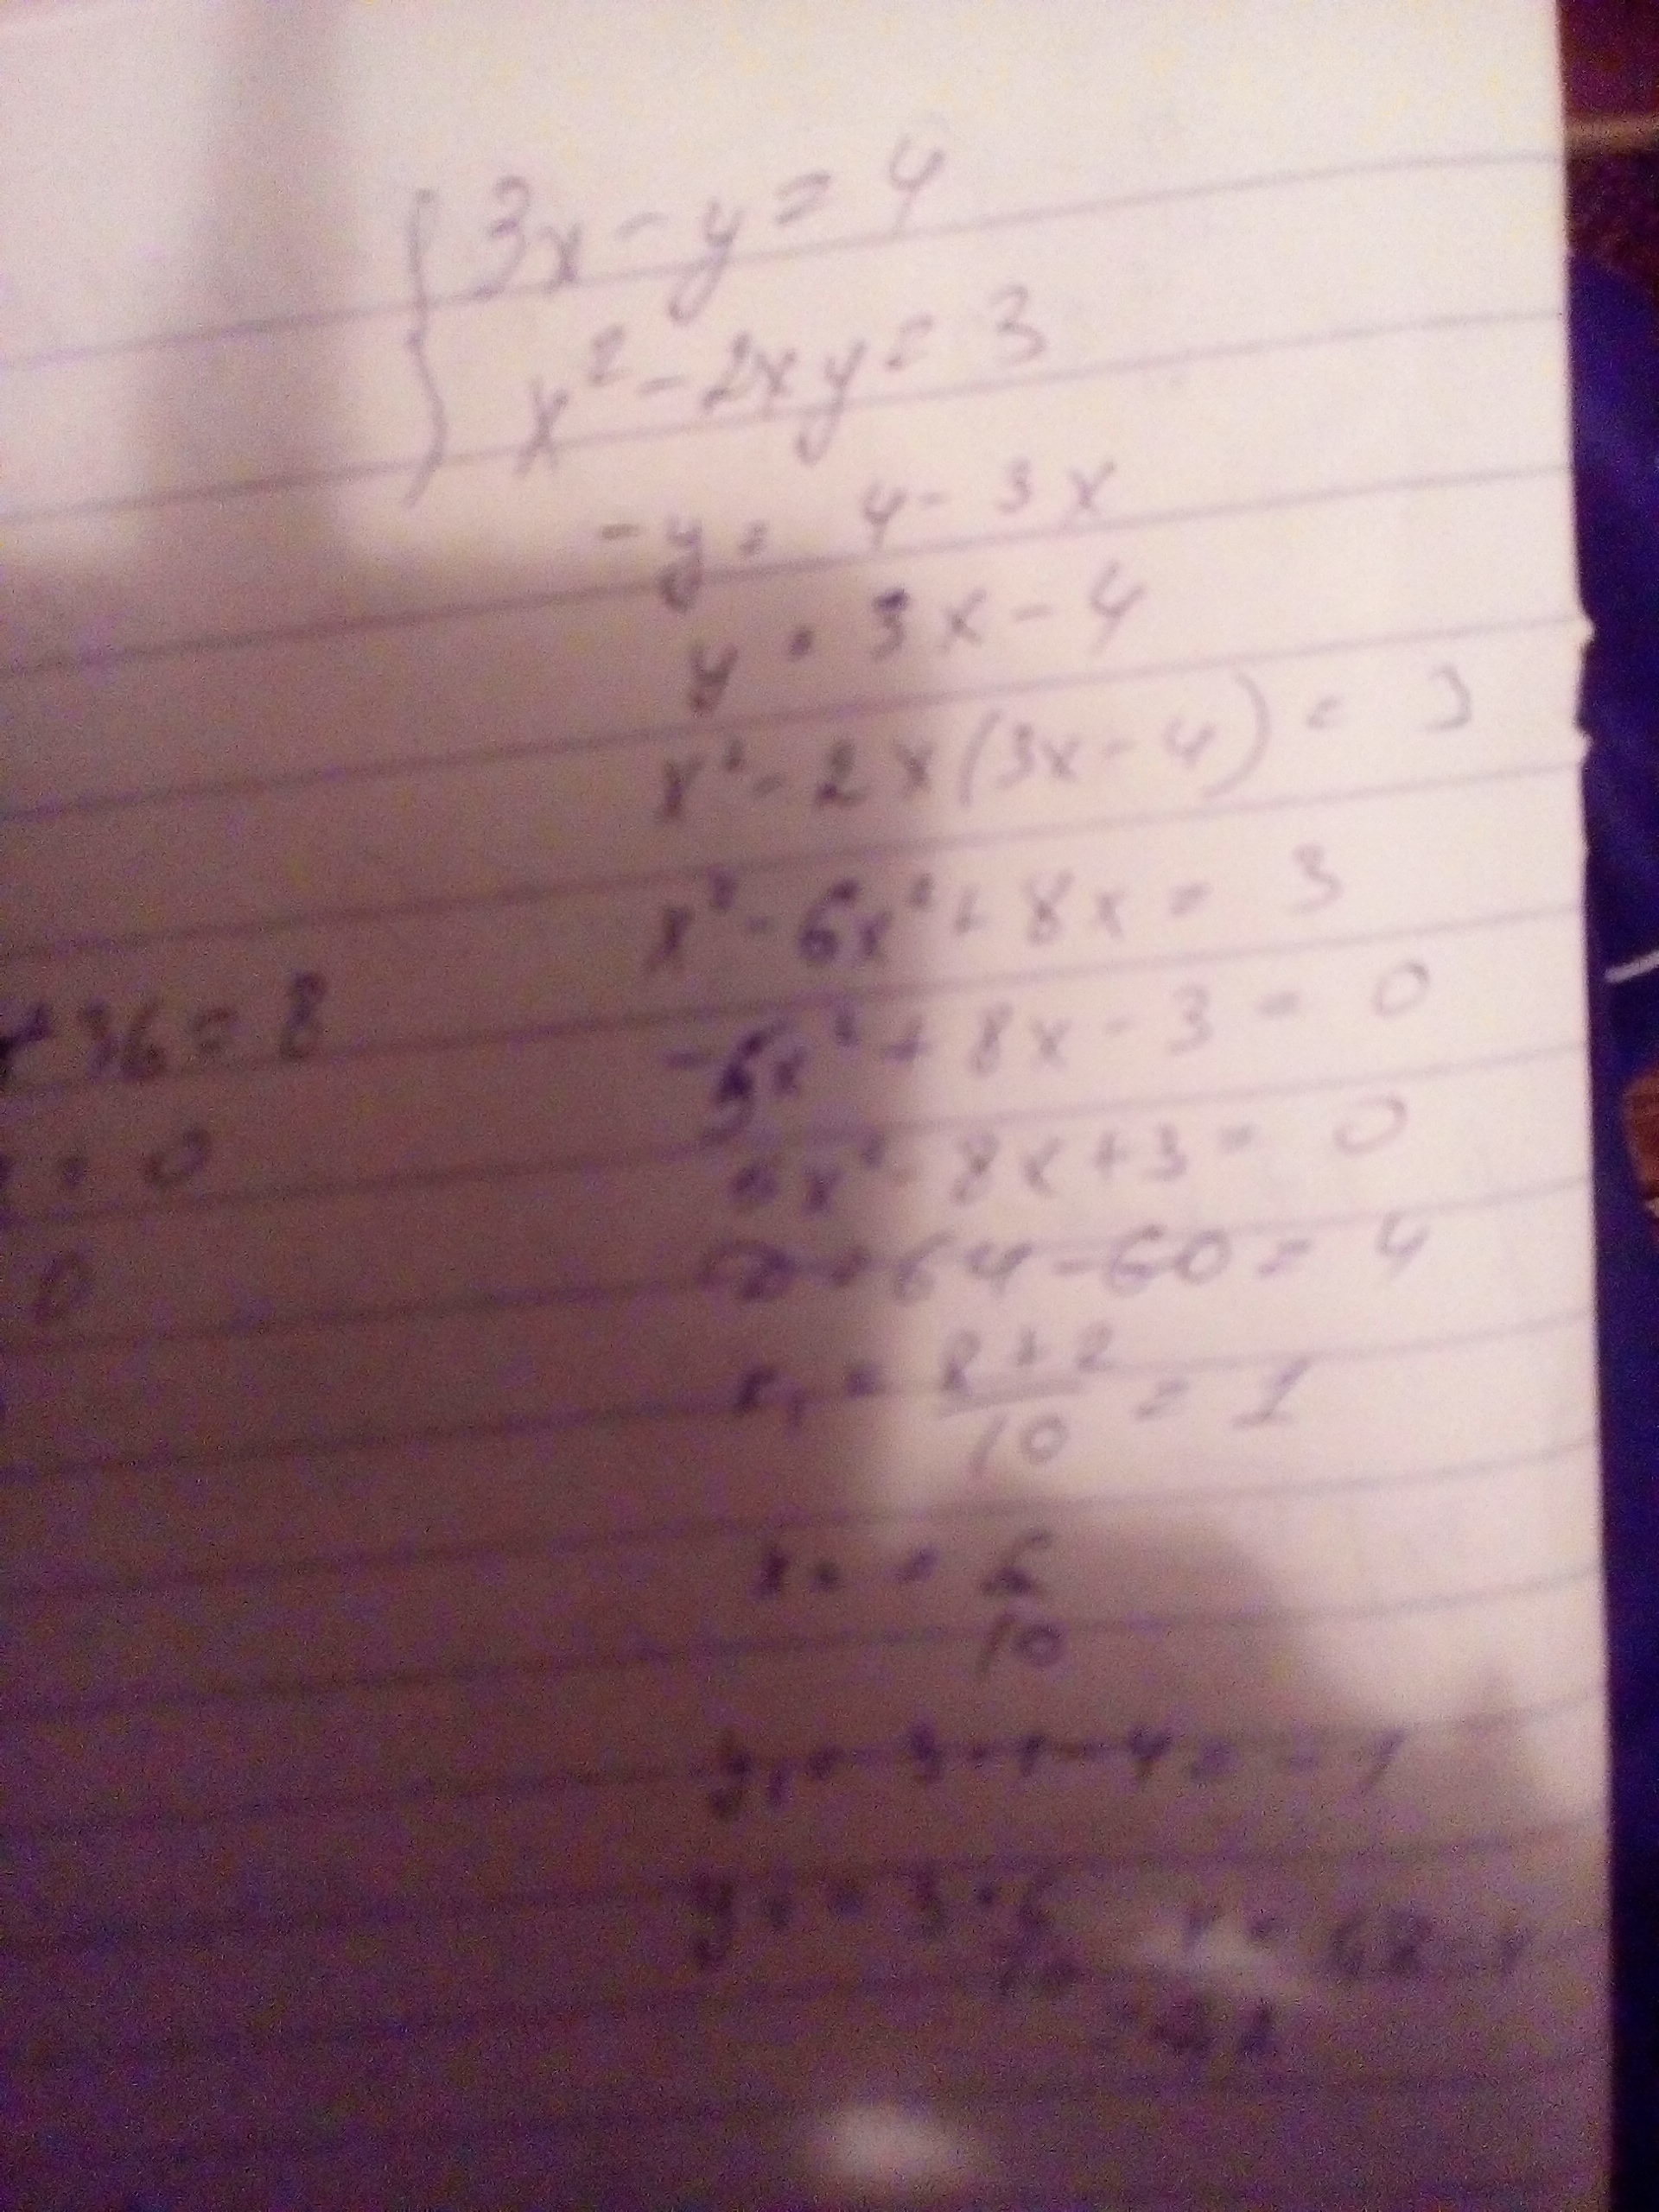 3x - y = 4
x² - 2xy = 3
-y = 4 - 3x
y = 3x - 4
x² - 2x(3x - 4) = 3
x² - 6x² + 8x = 3
-5x² + 8x - 3 = 0
5x² - 8x + 3 = 0
D = 64 - 60 = 4
x₁ = (8 + 2)/10 = 1
x₂ = 6/10
y₁ = 3·1 - 4 = -1
y₂ = 3·6/10
+36 = 8
= 0
0